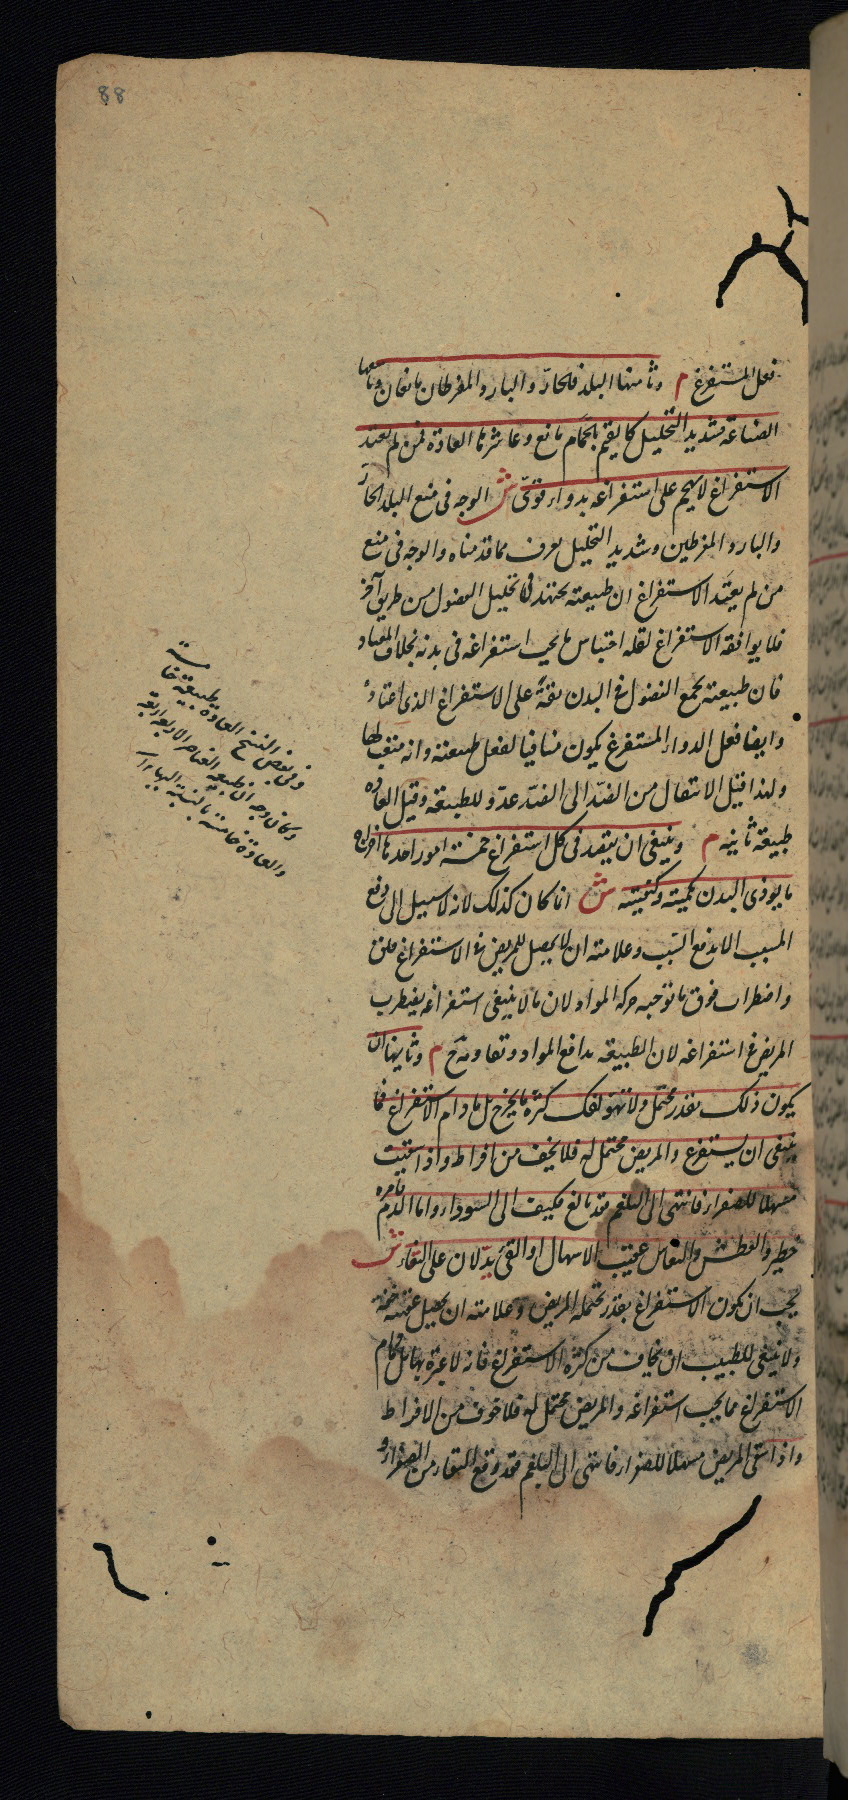 88
فعل المستفرغ م وثامنها البلد فالحار والبارد المفرطان مانعان وتاسعها
الصناعة فشديد التحليل كالقيم بالحمام مانع وعاشرها العادة فمن لم يعتد
الاستفراغ لا يهجم على استفراغه بدواء قوى ش الوجه فى منع البلد الحار
والبارد المفرطين وشديد التحليل يعرف مما قدمناه والوجه فى منع
من لم يعتد الاستفراغ ان طبيعته تجتهد فى تحليل الفضول من طريق آخر
فلا يوافقه الاستفراغ لقلة احتباس ما يجب استفراغه فى بدنه بخلاف المعتاد
فان طبيعته تجمع الفضول فى البدن ثقة على الاستفراغ الذى اعتاده
وايضا فعل الدواء المستفرغ يكون منافيا لفعل طبيعته وانه متعب لها
ولهذا قيل الانتقال من الضد الى الضد عدو للطبيعة وقيل العادة
طبيعة ثانية م وينبغى ان يقصد فى كل استفراغ خمسة امور احدها اخراج
ما يوذى البدن بكميته وكيفيته ش انما كان كذلك لانه لا سبيل الى دفع
المسبب الا بدفع السبب وعلامته ان لا يحصل للمريض فى الاستفراغ قلق
واضطراب فوق ما توجبه حركة المواد لان ما لا ينبغى استفراغه يضطرب
المريض فى استفراغه لان الطبيعة تدافع المواد وتعاوقه ح م وثانيها ان
يكون ذلك بقدر محتمل ولا تهولنك كثرة ما يخرج بل ما دام الاستفراغ مما
ينبغى ان يستفرغ والمريض محتمل له فلا يخف من افراط واذا سقيت
مسهلا للصفراء فانتهى الى البلغم فقد بالغ فكيف الى السوداء واما الدم فامره
خطير والعطش والنعاس عقيب الاسهال او القئ يدلان على النقاء ش
يجب ان يكون الاستفراغ بقدر تحتمله المريض وعلامته ان يحصل عقيبه خفة
ولا ينبغى للطبيب ان يخاف من كثرة الاستفراغ فانه لا عبرة بها بل ما دام
الاستفراغ مما يجب استفراغه والمريض محتمل له فلا خوف من الافراط
واذا سقى المريض مسهلا للصفراء فانتهى الى البلغم فقد وقع النقاء من الصفراء و
وفى بعض النسخ العادة طبيعة خامسة
وكان وجه ان طبيعة العناصر الاربعة اربعة
والعادة خامسة بالنسبة اليها